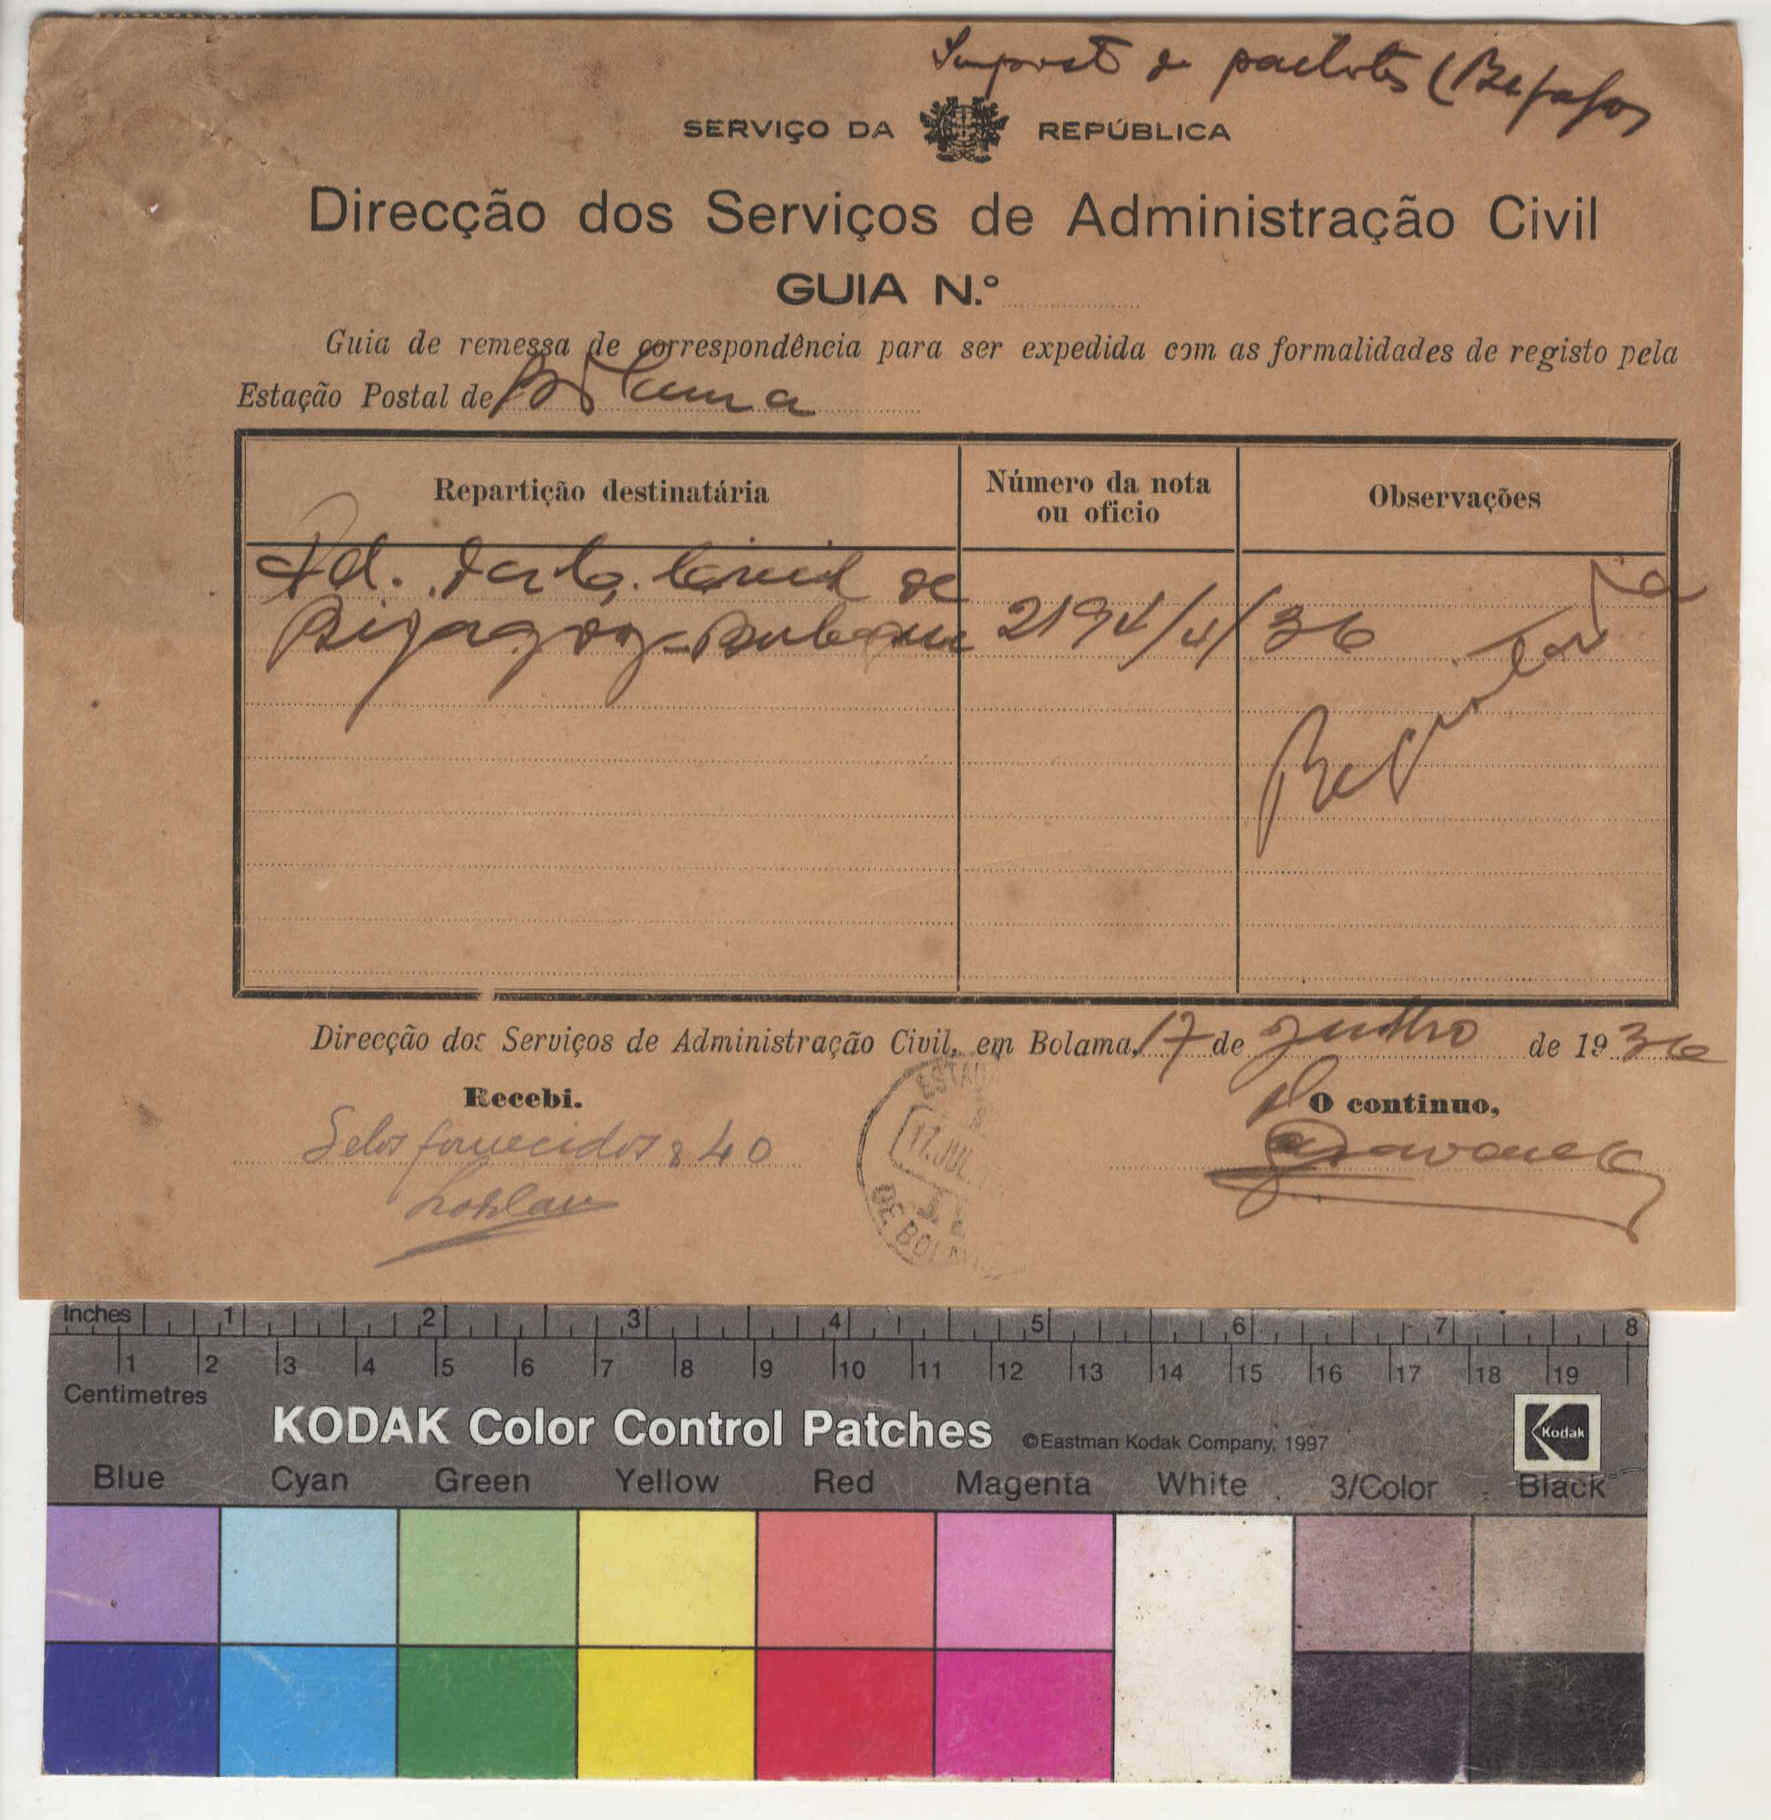 Imposto de palhotas (Bijagós
SERVIÇO DA REPÚBLICA
Direcção dos Serviços de Administração Civil
GUIA N.º
Guia de remessa de correspondência para ser expedida com as formalidades de registo pela
Estação Postal de Bolama
Repartição destinatária
Número da nota
ou oficio
Observações
Ad. Civil de
Bijagoz - Bubaque 2194/4/36
Registada
Direcção dos Serviços de Administração Civil, em Bolama, 17 de Julho de 1936
Recebi.
O continuo,
Selos fornecidos 840
17.JUL
DE BOLAMA
Inches 1 2 3 4 5 6 7 8
1 2 3 4 5 6 7 8 9 10 11 12 13 14 15 16 17 18 19
Centimetres
KODAK Color Control Patches ©Eastman Kodak Company, 1997 Kodak
Blue Cyan Green Yellow Red Magenta White 3/Color Black